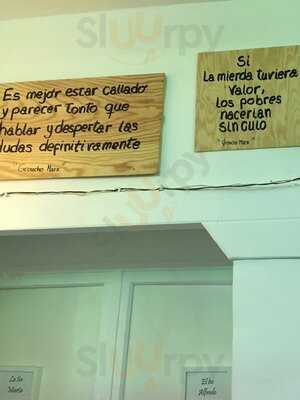 Es mejor estar callado
y parecer tonto que
hablar y despertar las
dudas definitivamente
"Groucho Marx"
Si
La mierda tuviera
Valor,
los pobres
nacerían
SIN CULO
"Groucho Marx"
La tia
María
El tio
Alfredo
Sluurpy